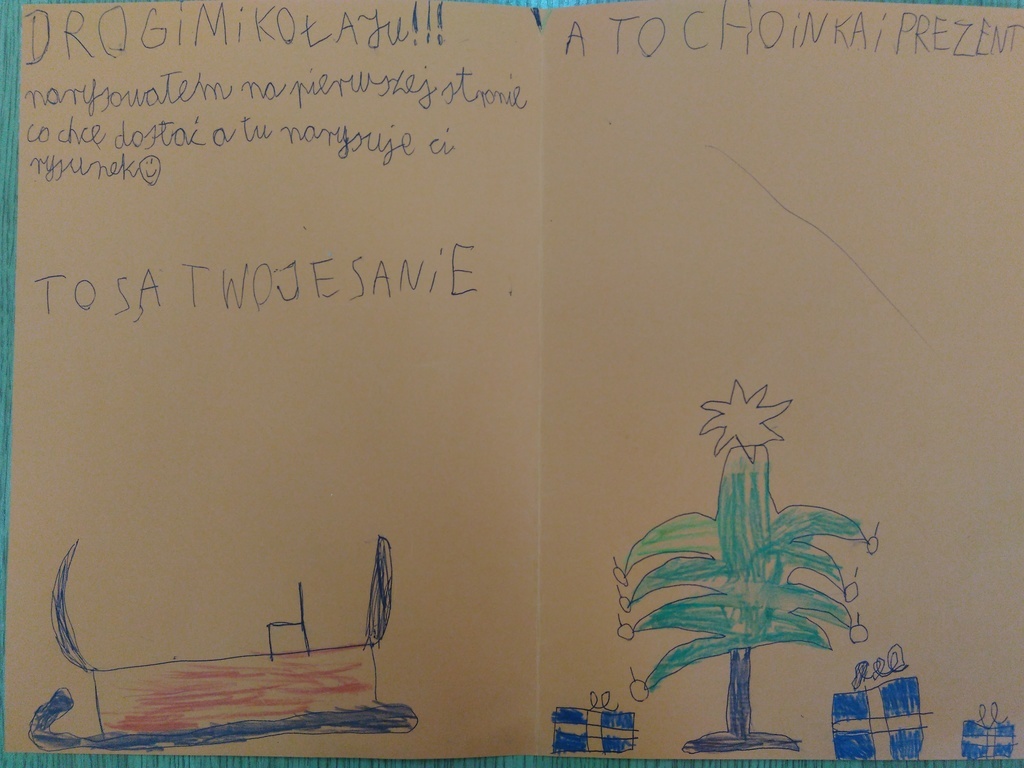 DROGI MiKOŁAJu!!!
narysowałem na pierwszej stronie
co chcę dostać a tu narysuję ci
rysunek☺
TO SĄ TWOJE SANiE.
A TO CHOiNKA i PREZENT